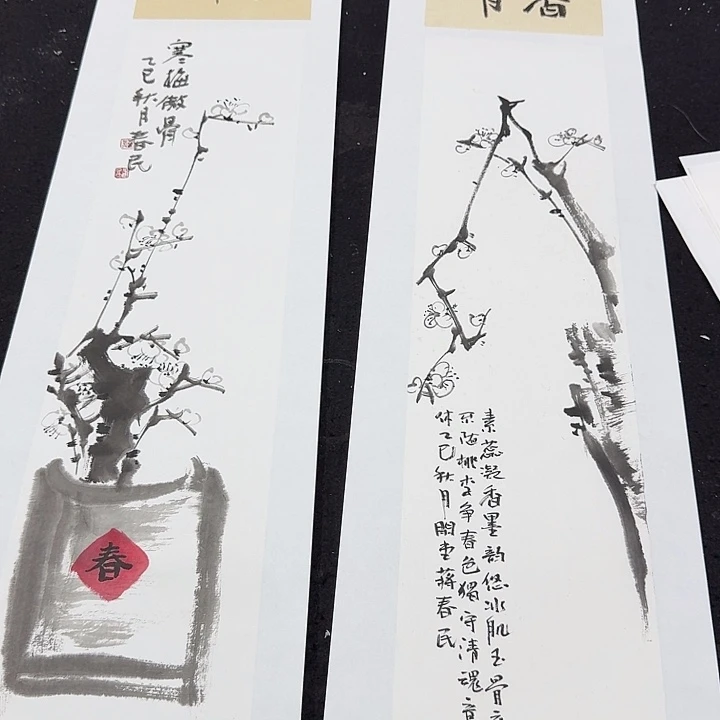 寒梅傲骨
乙巳秋月春民
春
香
素蕊凝香墨韵悠冰肌玉骨
桃李争春色獨守清魂
乙巳秋月蒋春民